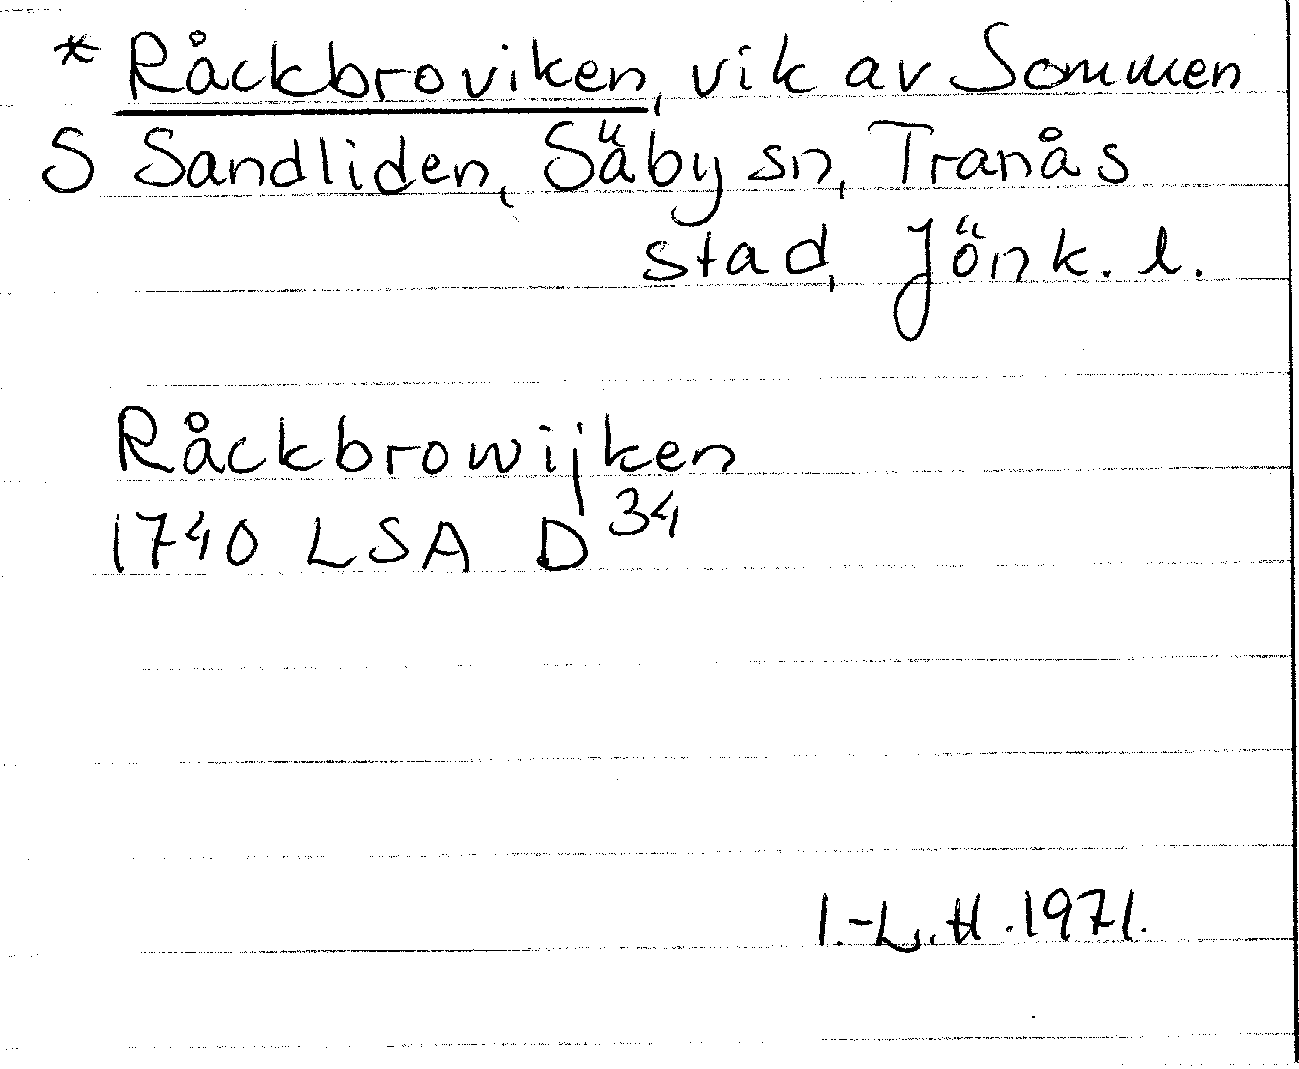 * Råckbroviken, vik av Sommen
S Sandliden, Säby sn, Tranås
stad, Jönk. l.
Råckbrowijken
1740 LSA D 34
I.-L. H. 1971.